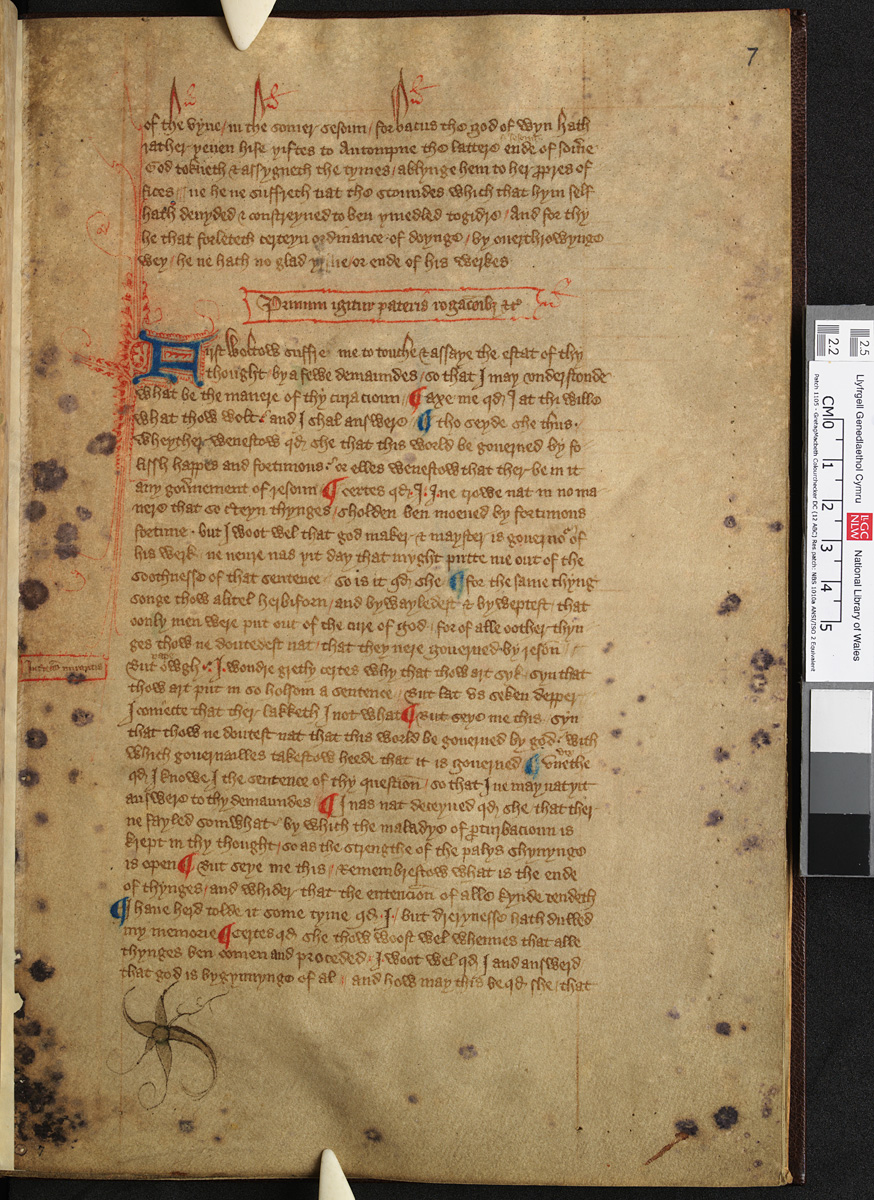 7
of the vyne / in the somer sesoun / for bacus the god of wyn hath
rather yeuen hise yiftes to Autompne the lattere ende of somer
God tokneth & assygneth the tymes / ablynge hem to her propres of
fices / ne he ne suffreth nat the stoundes which that hym self
hath deuyded & constreyned to ben ymedled togidre / And for thy
he that forleteth certeyn ordinance of doynge / by ouerthrowynge
wey / he ne hath no glad ende of his werkes
Primum igitur pateris rogacionibus etc
First woltow suffre me to touche & assaye the estat of thy
thought / by a fewe demaundes / so that I may vnderstonde
what be the manere of thy curacioun / ¶ axe me qd I at thi wille
what thow wolt / and I shal answere ¶ tho seyde she thus
wheyther wenestow qd she that this world be gouerned by fo
lissh happes and fortunous / or elles wenestow that ther be in it
any gouernement of resoun ¶ certes qd I / I ne trowe nat in no ma
nere that so certeyn thynges / sholden ben moeued by fortunous
fortune · but I woot wel that god maker & mayster is gouernor of
his werk / ne neuere nas yit day that myght putte me out of the
soothnesse of that sentence / so is it qd she ¶ for the same thyng
songe thow a litel herbiforn / and bywayledest & byweptest / that
oonly men were put out of the cure of god / for of alle oother thyn
ges thow ne doutedest nat / that they nere gouerned by reson
But owgh / I wondre gretly certes why that thow art syk / syn that
thow art put in so holsom a sentence / But lat vs seken depper
I coniecte that ther lakketh I not what ¶ But seye me this / syn
that thow ne doutest nat that this world be gouerned by god / with
which gouernailles takestow heede that it is gouerned ¶ vnnethe
qd I knowe I the sentence of thy question / so that I ne may nat yit
answere to thy demaundes ¶ I nas nat deceyued qd she that ther
ne fayled somwhat / by which the maladye of perturbacioun is
krept in thy thought / so as the strengthe of the palys shynynge
is open ¶ But seye me this / Remembrestow what is the ende
of thynges / and whider that the entencion of alle kynde tendeth
¶ I haue herd tolde it some tyme qd I / but drerynesse hath dulled
my memorie ¶ Certes qd she thow woost wel whennes that alle
thynges ben comen and proceded / I woot wel qd I and answerd
that god is bygynnynge of al / and how may this be qd she / that
Llyfrgell Genedlaethol Cymru
LLGC
NLW
National Library of Wales
CM 0 1 2 3 4 5
2.2
2.5